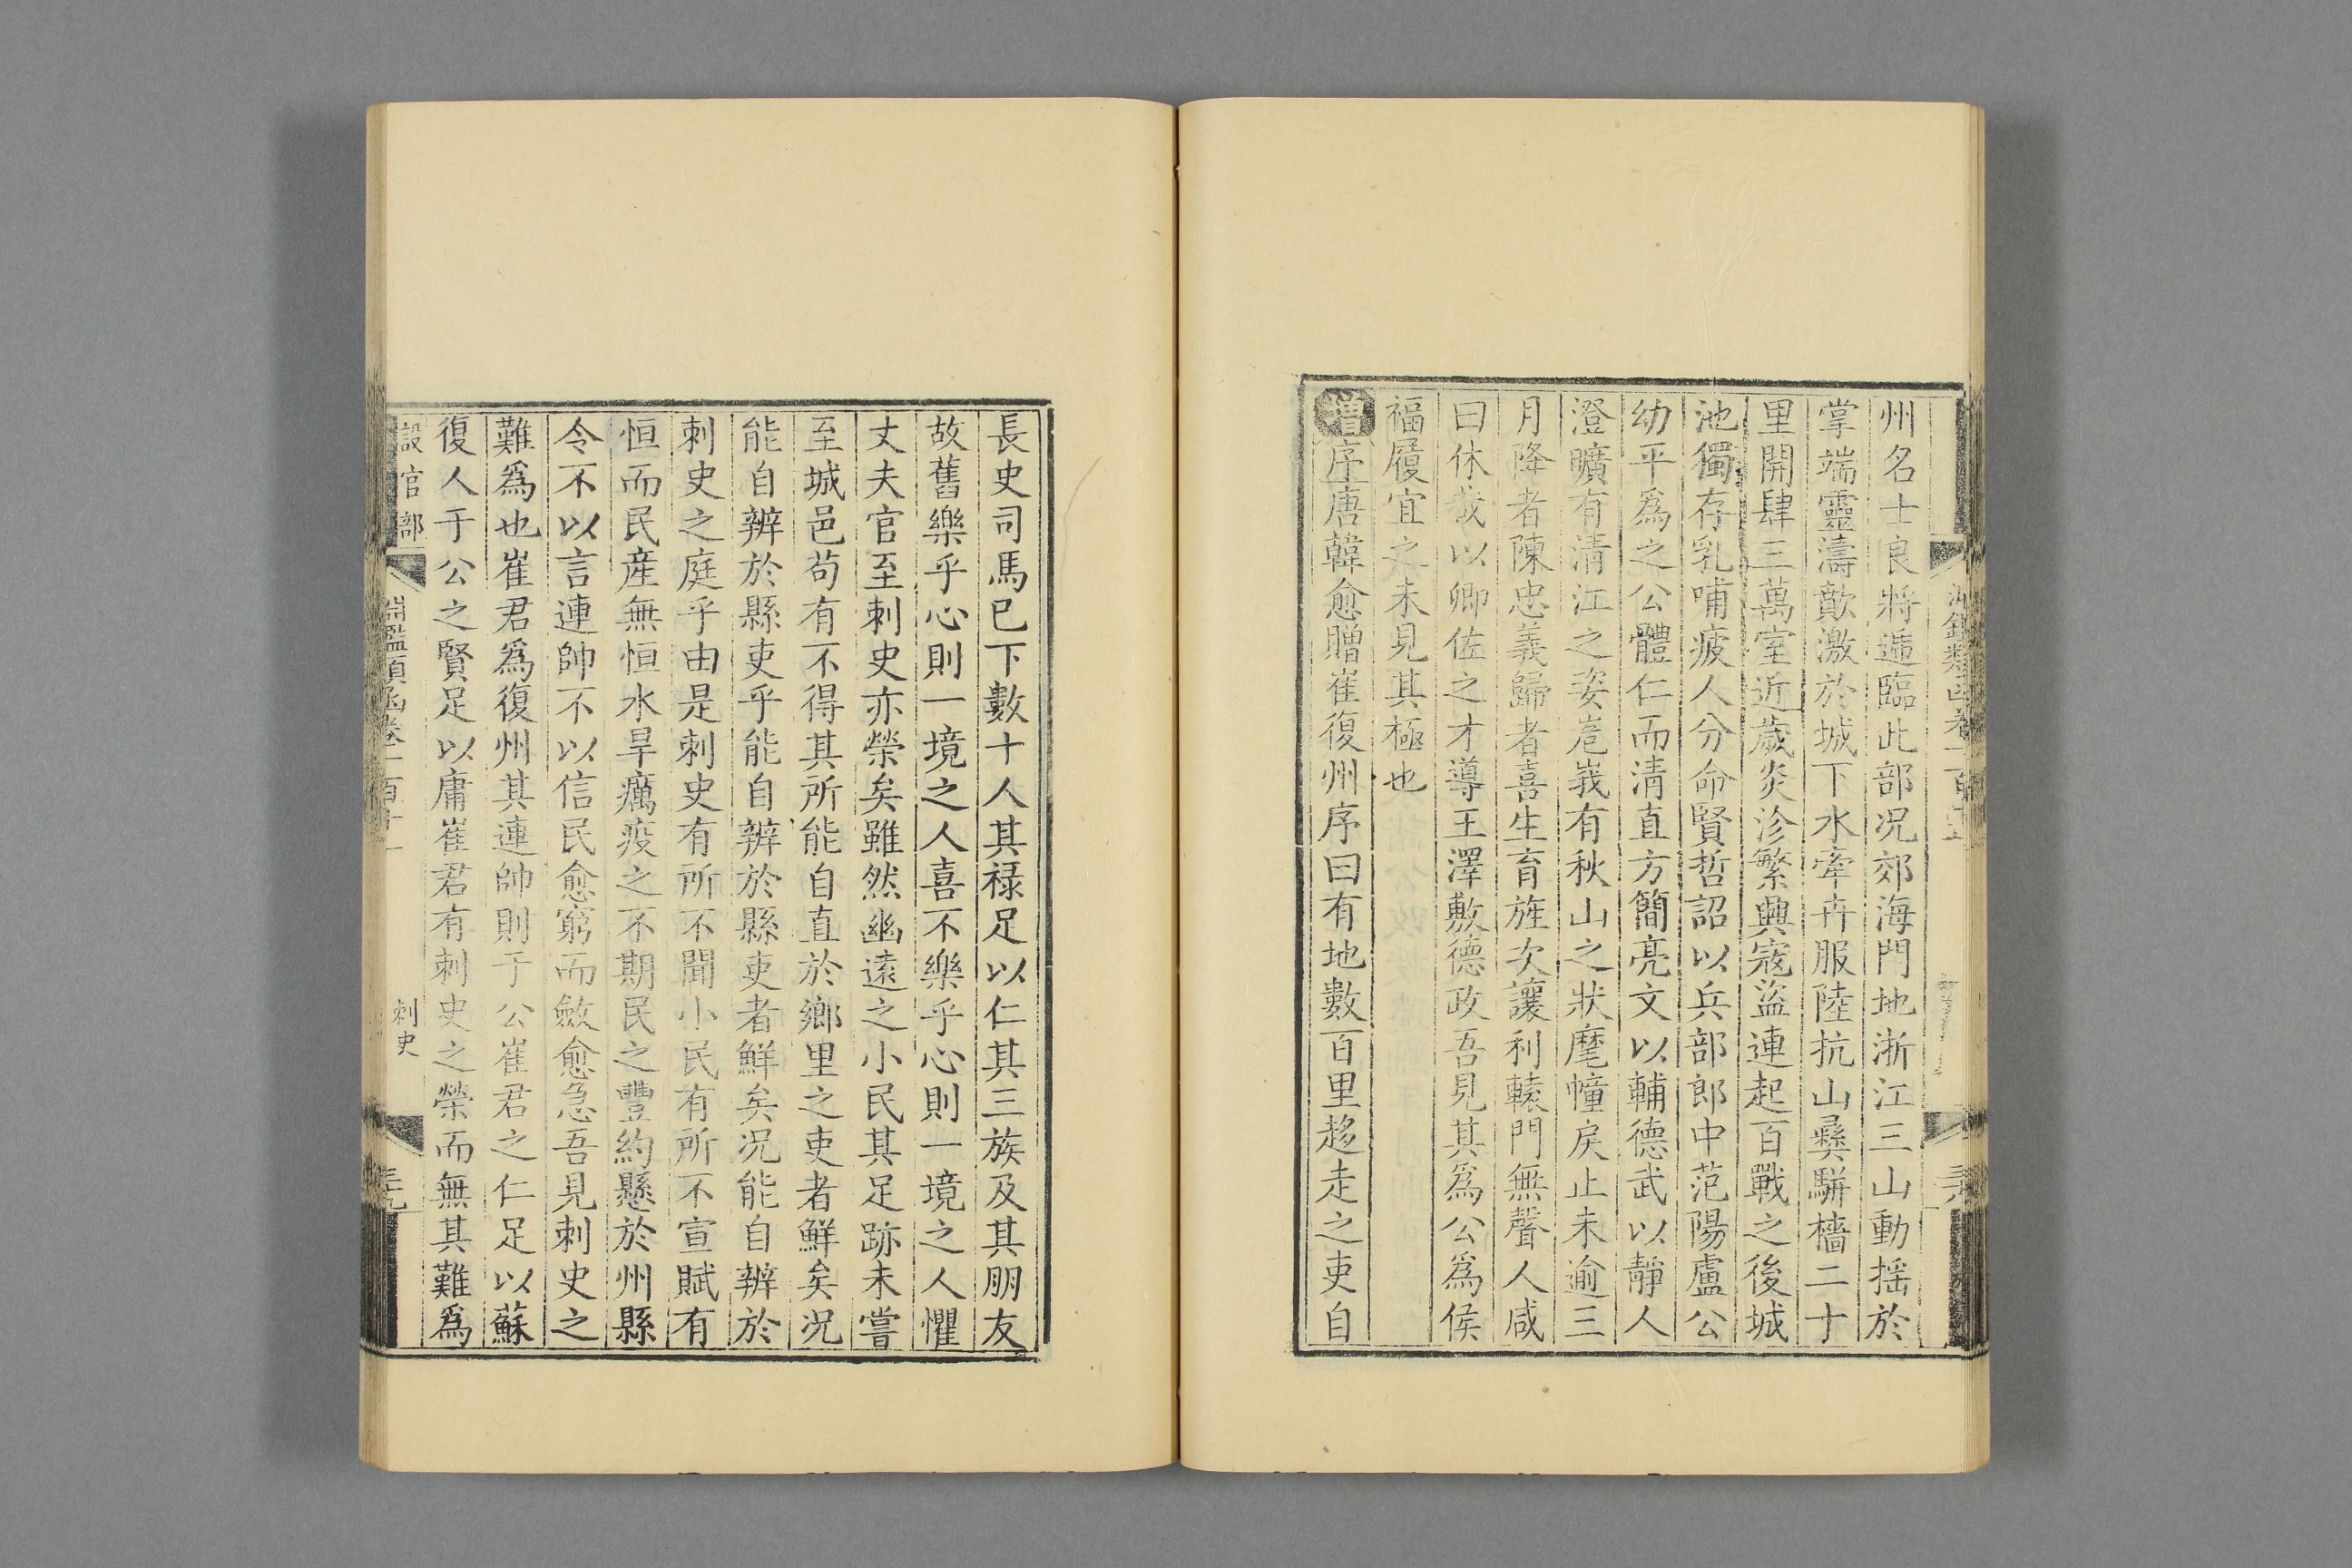 州名士良將遞臨此部况郊海門地浙江三山動揺於
掌端靈濤歕激於城下水牽卉服陸抗山彞駢檣二十
里開肆三萬室近歲炎沴繁興寇盜連起百戰之後城
池獨存乳哺疲人分命賢哲詔以兵部郎中范陽盧公
幼平爲之公體仁而清直方簡亮文以輔德武以靜人
澄曠有清江之姿嵬峩有秋山之狀麾幢戾止未逾三
月降者陳忠義歸者喜生育旌次讓利轅門無聲人咸
曰休哉以卿佐之才導王澤敷德政吾見其爲公爲侯
福履宜之未見其極也
増序唐韓愈贈崔復州序曰有地數百里趍走之吏自
長史司馬巳下數十人其禄足以仁其三族及其朋友
故舊樂乎心則一境之人喜不樂乎心則一境之人懼
丈夫官至刺史亦榮矣雖然幽遠之小民其足跡未嘗
至城邑苟有不得其所能自直於鄉里之吏者鮮矣况
能自辨於縣吏乎能自辨於縣吏者鮮矣况能自辨於
刺史之庭乎由是刺史有所不聞小民有所不宣賦有
恒而民産無恒水旱癘疫之不期民之豐約懸於州縣
令不以言連帥不以信民愈窮而斂愈急吾見刺史之
難爲也崔君爲復州其連帥則于公崔君之仁足以蘇
復人于公之賢足以庸崔君有刺史之榮而無其難爲
設官部
淵鑑類函卷一百十一
刺史
三九